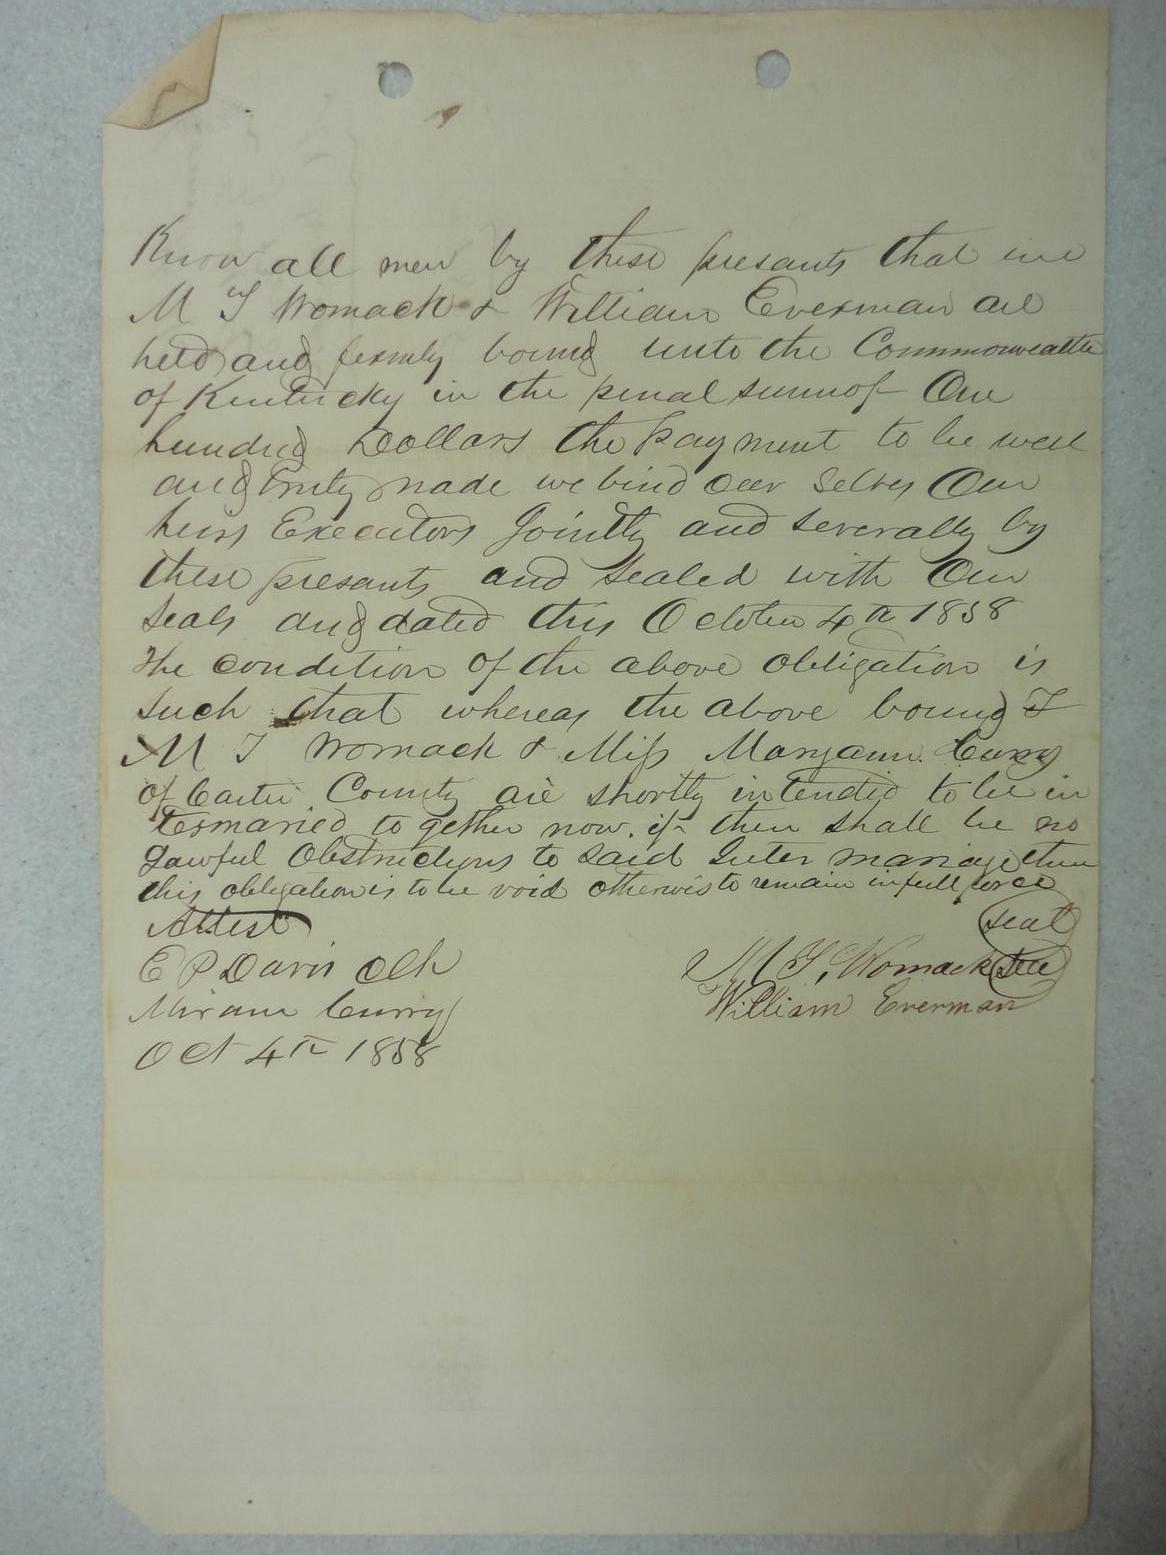 Know all men by these presants that we
M T Womack & William Everman are
held and firmly bound unto the Commonwealth
of Kentucky in the penal sum of One
hundred Dollars the payment to be well
and truly made we bind our selves Our
heirs Executors Jointly and severally by
these presants and sealed with Our
seals and dated this October 4th 1858
The condition of the above obligation is
such that whereas the above bound
M T Womack & Miss Maryann Curry
of Carter County are shortly intended to be in
termaried to gether now if ther shall be no
Lawful Obstructions to said Inter mariage then
this obligation is to be void otherwis to remain in full force
Attest seal
E P Davis Clk M T, Womack seal
Miram Curry William Everman
Oct 4th 1858